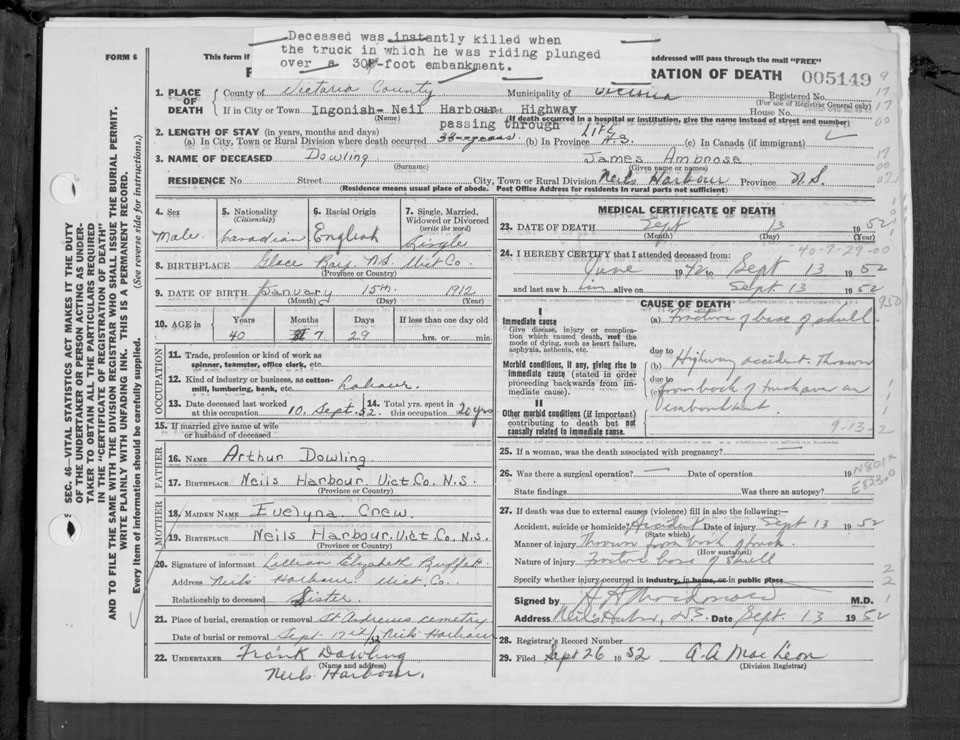 Deceased was instantly killed when
the truck in which he was riding plunged
over a 30-foot embankment.
FORM 6
This form if
addressed will pass through the mail "FREE"
RATION OF DEATH
005149
1. PLACE OF DEATH
County of Victoria County Municipality of Victoria Registered No.
(For use of Registrar General only)
If in City or Town Ingonish-Neil Harbour Highway House No.
(Name) (If death occurred in a hospital or institution, give the name instead of street and number)
passing through
2. LENGTH OF STAY (in years, months and days)
(a) In City, Town or Rural Division where death occurred (b) In Province Life N.S. (c) In Canada (if immigrant)
3. NAME OF DECEASED Dowling James Ambrose
(Surname) (Given name or names)
RESIDENCE No Street City, Town or Rural Division Neils Harbour Province N.S.
(Residence means usual place of abode. Post Office Address for residents in rural parts not sufficient)
4. Sex Male
5. Nationality (Citizenship) Canadian
6. Racial Origin English
7. Single, Married, Widowed or Divorced (write the word) Single
8. BIRTHPLACE Glace Bay. N.S. Vict Co.
(Province or Country)
9. DATE OF BIRTH January 15th. 1912
(Month) (Day) (Year)
10. AGE in Years Months Days If less than one day old
40 7 29 hrs. or min.
OCCUPATION
11. Trade, profession or kind of work as
spinner, teamster, office clerk, etc.
12. Kind of industry or business, as cotton-
mill, lumbering, bank, etc. Labour.
13. Date deceased last worked at this occupation 10. Sept. 52.
14. Total yrs. spent in this occupation 20 yrs
15. If married give name of wife
or husband of deceased
FATHER
16. NAME Arthur Dowling.
17. BIRTHPLACE Neils Harbour Vict Co. N.S.
(Province or Country)
MOTHER
18. MAIDEN NAME Evelyna Crew.
19. BIRTHPLACE Neils Harbour. Vict Co. N.S.
(Province or Country)
20. Signature of informant Lillian Elizabeth Buffett
Address Neils Harbour Vict. Co.
Relationship to deceased Sister.
21. Place of burial, cremation or removal St Andrews cemetry
Date of burial or removal Sept 17th/52 Neils Harbour
22. UNDERTAKER Frank Dowling
(Name and address)
Neils Harbour.
MEDICAL CERTIFICATE OF DEATH
23. DATE OF DEATH Sept 13 1952
(Month) (Day) (Year)
40-7-29-00
24. I HEREBY CERTIFY that I attended deceased from:
June 1942 to Sept 13 1952
and last saw him alive on Sept 13 1952
CAUSE OF DEATH
I
Immediate cause
Give disease, injury or complication which caused death, not the mode of dying, such as heart failure, asphyxia, asthenia, etc.
(a) Fracture of base of skull.
due to
Morbid conditions, if any, giving rise to immediate cause (stated in order proceeding backwards from immediate cause).
(b) Highway accident. Thrown
due to
(c) from back of truck over an
embankment.
II
Other morbid conditions (if important) contributing to death but not causally related to immediate cause.
9-13-2
25. If a woman, was the death associated with pregnancy?
N801X
E823.0
26. Was there a surgical operation? Date of operation 19
State findings Was there an autopsy?
27. If death was due to external causes (violence) fill in also the following:-
Accident, suicide or homicide? Accident Date of injury Sept 13 1952
(State which)
Manner of injury Thrown from back of truck
(How sustained)
Nature of injury Fracture base of skull
Specify whether injury occurred in industry, in home, or in public place
Signed by M.D.
Address Neils Harbour, N.S. Date Sept. 13 1952
28. Registrar's Record Number
29. Filed Sept 26 1952 A. A. MacLeon
(Division Registrar)
SEC. 46—VITAL STATISTICS ACT MAKES IT THE DUTY
OF THE UNDERTAKER OR PERSON ACTING AS UNDER-
TAKER TO OBTAIN ALL THE PARTICULARS REQUIRED
IN THE "CERTIFICATE OF REGISTRATION OF DEATH"
AND TO FILE THE SAME WITH THE DIVISION REGISTRAR WHO SHALL ISSUE THE BURIAL PERMIT.
WRITE PLAINLY WITH UNFADING INK. THIS IS A PERMANENT RECORD.
Every item of information should be carefully supplied. (See reverse side for instructions.)